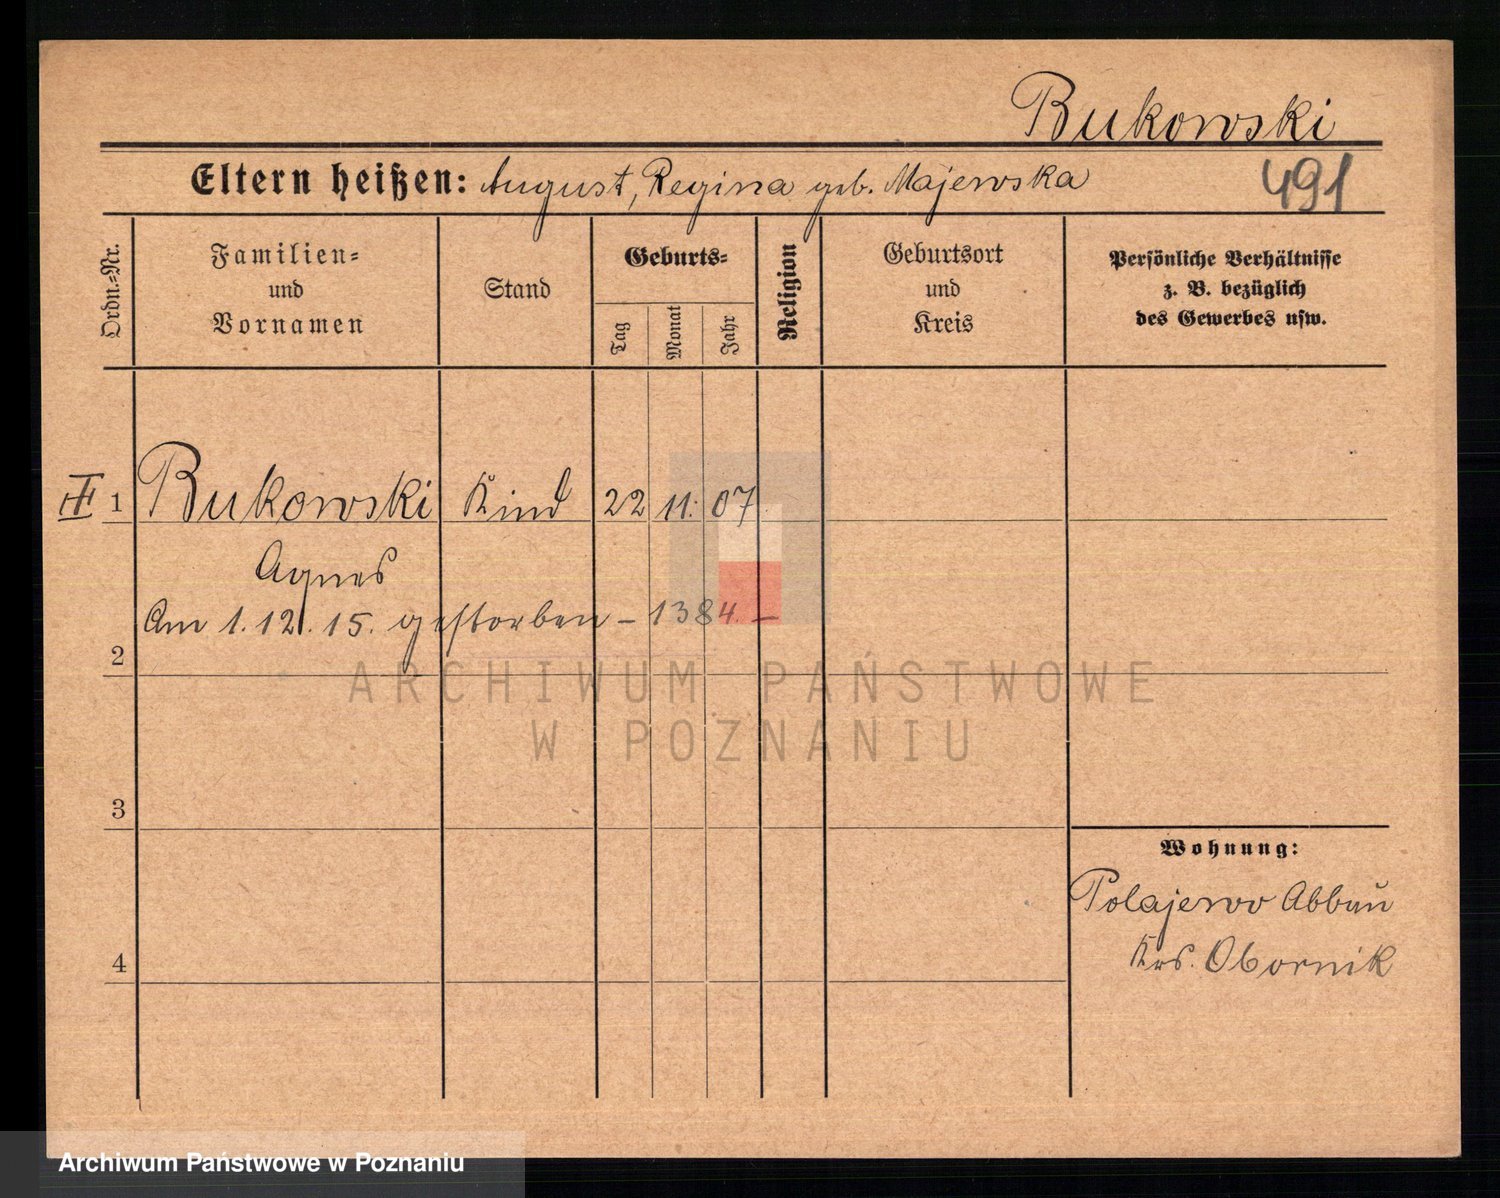 Bukowski
Eltern heißen: August, Regina geb. Majewska
491
Ordn.=Nr.
Familien=
und
Vornamen
Stand
Geburts=
Tag
Monat
Jahr
Religion
Geburtsort
und
Kreis
Persönliche Verhältnisse
z. B. bezüglich
des Gewerbes usw.
1 Bukowski Kind 22 11. 07
Agnes
Am 1. 12. 15. gestorben – 1384. –
2
ARCHIWUM PAŃSTWOWE
W POZNANIU
3
Wohnung:
Polajewo Abbau
Krs. Obornik
4
Archiwum Państwowe w Poznaniu